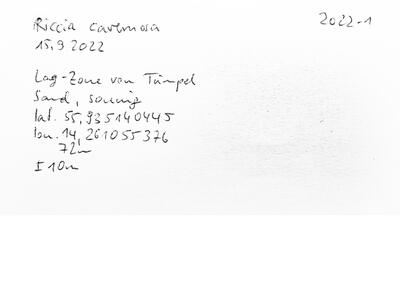 Riccia cavernosa
2022-1
15.9 2022
Lag-Zone von Tümpel
Sand, sonnig
lat. 55,935140445
lon. 14,261055376
72m
± 10m